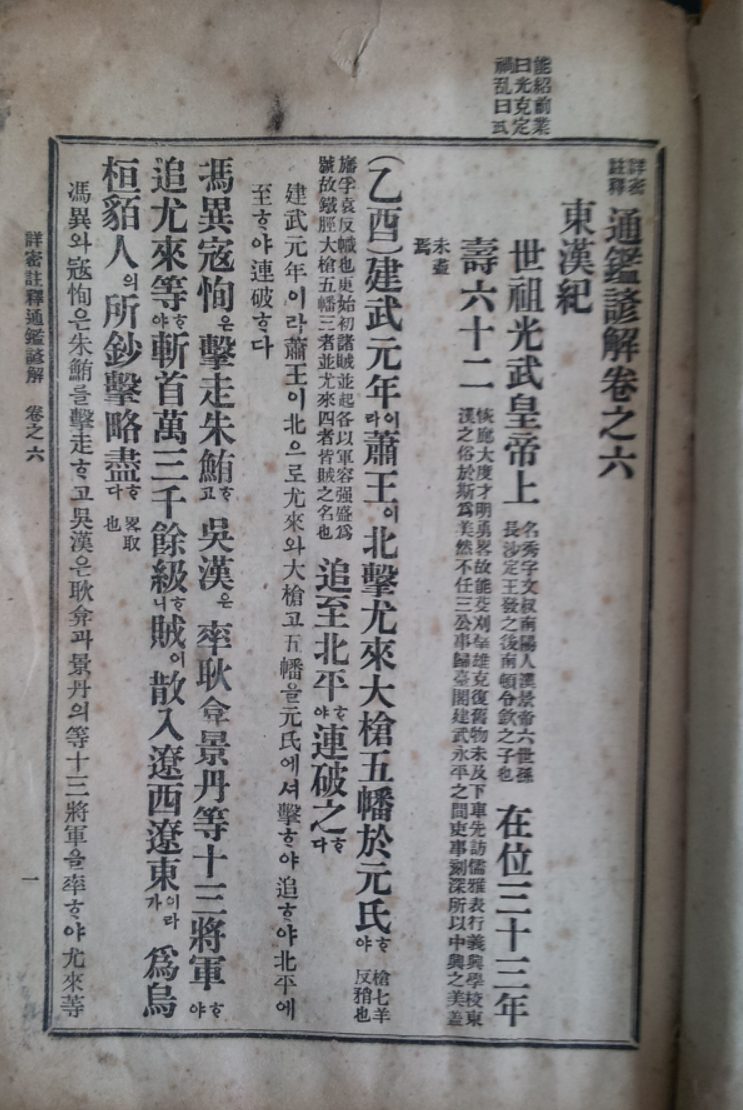 能紹前業
曰光克定
禍乱曰武
詳密
註釋
通鑑諺解卷之六
東漢紀
世祖光武皇帝上
名秀字文叔南陽人漢景帝六世孫
長沙定王發之後南頓令欽之子也
在位三十三年
壽六十二
恢廓大度才明勇畧故能芟刈羣雄克復舊物未及下車先訪儒雅表行義興學校東
漢之俗於斯爲美然不任三公事歸臺閣建武永平之間吏事刻深所以中興之美蓋
未盡
焉
(乙酉)建武元年이라蕭王이北擊尤來大槍五幡於元氏ᄒᆞ야
槍七羊
反矟也
旛孚袁反幟也更始初諸賊並起各以軍容强盛爲
號故鐵脛大槍五幡三者並尤來四者皆賊之名也
追至北平ᄒᆞ야連破之ᄒᆞ다
建武元年이라蕭王이北으로尤來와大槍고五幡을元氏에셔擊ᄒᆞ야追ᄒᆞ야北平에
至ᄒᆞ야連破ᄒᆞ다
馮異寇恂은擊走朱鮪ᄒᆞ고吳漢은率耿弇景丹等十三將軍ᄒᆞ야
追尤來等ᄒᆞ야斬首萬三千餘級ᄒᆞ니賊이散入遼西遼東이라가爲烏
桓貊人의所鈔擊略盡ᄒᆞ다
畧取
也
馮異와寇恂은朱鮪를擊走ᄒᆞ고吳漢은耿弇과景丹의等十三將軍을率ᄒᆞ야尤來等
詳密註釋通鑑諺解 卷之六
一